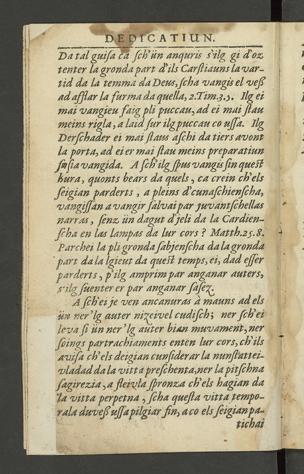 DEDICATIUN.
Da tal guisa ca sch'ün anquris s'ilg gi d'oz
tenter la gronda part d'ils Carstiauns la var-
tid da la temma da Deus, scha vangis el veß
ad afflar la furma da quella, 2. Tim. 3.5. Ilg ei
mai vangieu faig pli puccau, ad ei mai stau
meins rigla, a laid sur ilg puccau co ussa. Ilg
Derschader ei mai staus aschi da tiers avont
la porta, ad ei er mai stau meins preparatiun
sin sia vangida. A sch'ilg spus vangis sin quest'
hura, quonts bears da quels, ca crein ch'els
seigian parderts, a pleins d'cunaschienscha,
vangissan a vangir salvai par juvantschellas
narras, senz ün dagut d'jeli da la Cardien-
scha en las lampas da lur cors? Matth. 25.8.
Parchei la pli gronda sabjenscha da la gronda
part da la lgieut da quest temps, ei, dad esser
parderts, p'ilg amprim par anganar auters,
s'ilg suenter er par anganar sasez.
A sch'ei je ven ancanuras à mauns ad els
ün ner'lg auter nizeivel cudisch; ner sch'ei
leva si ün ner'lg auter bian muvament, ner
soings partrachiaments enten lur cors, ch'ils
avisa ch'els deigian cunsiderar la nunstattei-
vladad da la vitta preschenta, ner la pitschna
sagirezia, a fleivla spronza ch'els hagian da
la vitta perpetna, scha questa vitta tempo-
rala duveß ussa pilgiar fin, a co els seigian pa-
tichai